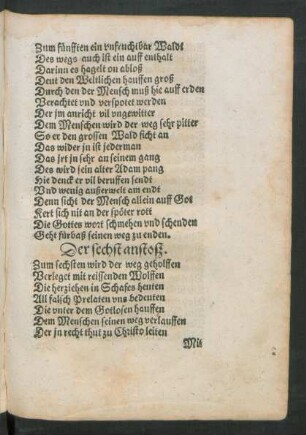 Zum fünfften ein vnfruchtbar Waldt
Des wegs auch ist ein auff enthalt
Darinn es hagelt on abloß
Deut den Weltlichen hauffen groß
Durch den der Mensch muß hie auff erden
Verachtet vnd verspotet werden
Der jm anricht vil vngewitter
Dem Menschen wird der weg sehr pitter
So er den grossen Wald sicht an
Das wider jn ist jederman
Das jrt jn sehr an seinem gang
Des wird sein alter Adam pang
Hie denck er vil beruffen sendt
Vnd wenig außerwelt am endt
Denn sicht der Mensch allein auff Got
Kert sich nit an der spöter rott
Die Gottes wort schmehen vnd schenden
Geht fürbaß seinen weg zu enden.
Der sechst anstoß.
Zum sechsten wird der weg geholffen
Verleget mit reissenden Wolffen
Die herziehen in Schafes heuten
All falsch Prelaten vns bedeuten
Die vnter dem Gotlosen hauffen
Dem Menschen seinen weg verlauffen
Der jn recht thut zu Christo leiten
Mit